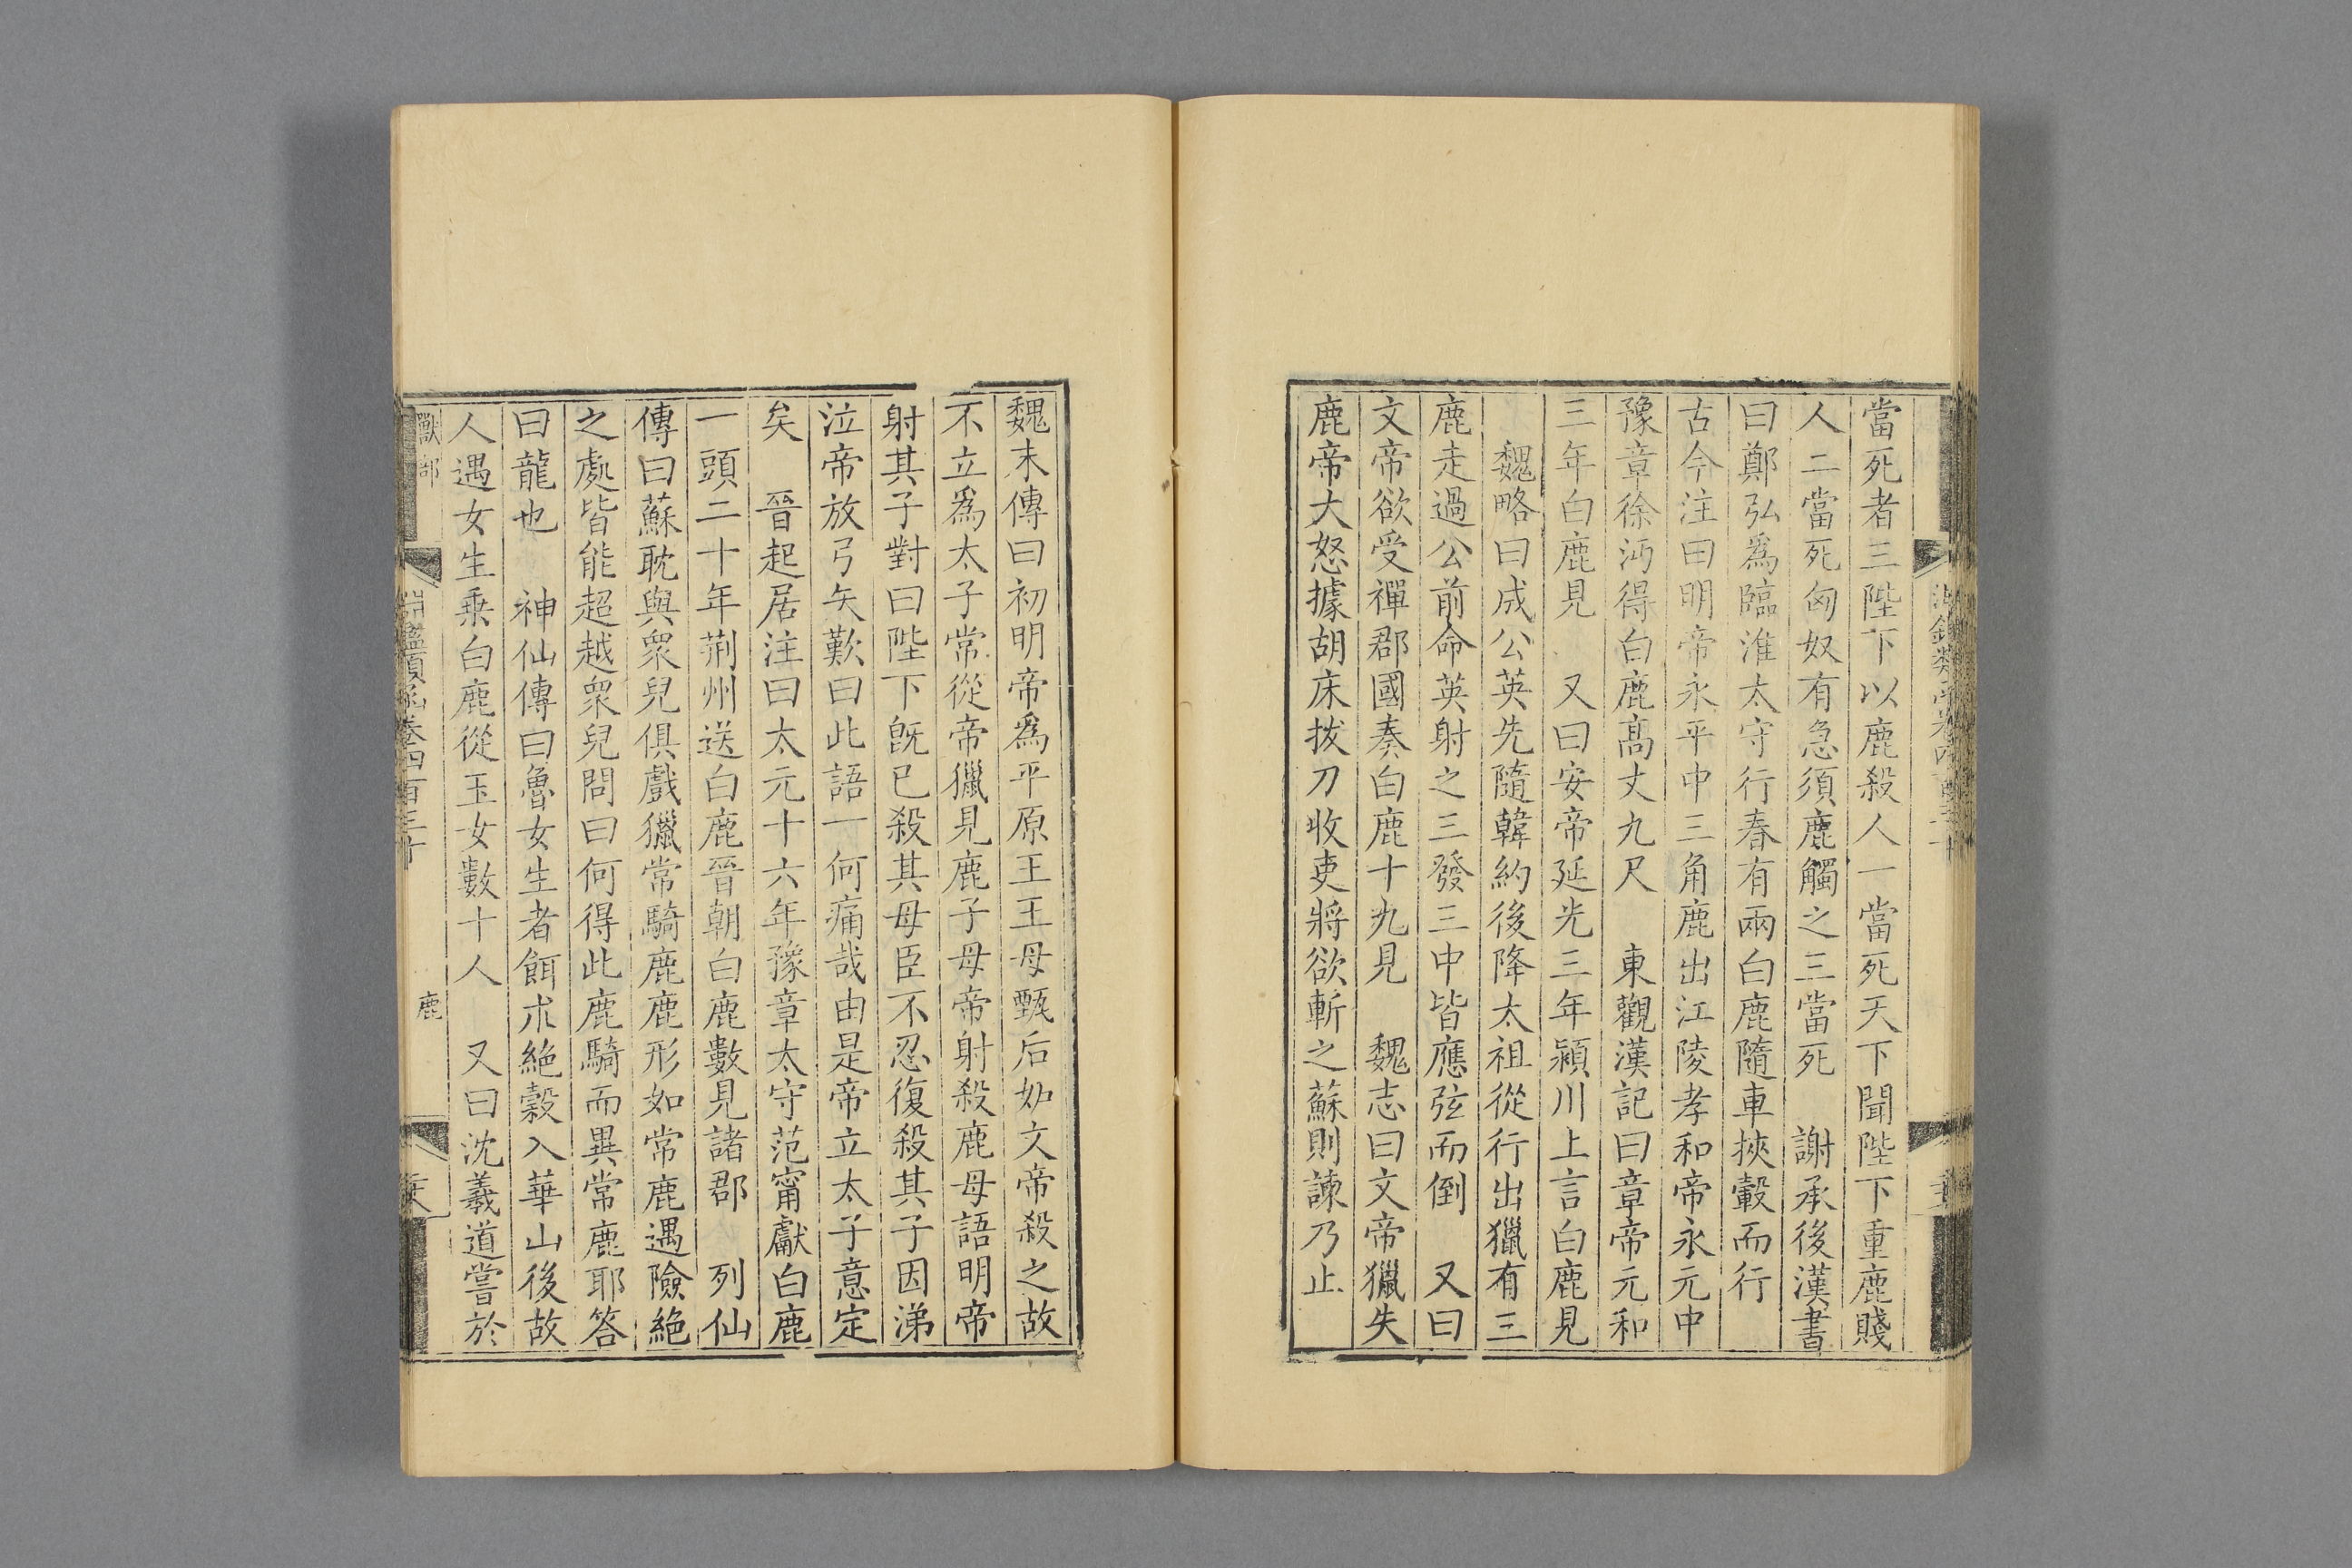 當死者三陛下以鹿殺人一當死天下聞陛下重鹿賤
人二當死匈奴有急須鹿觸之三當死　謝承後漢書
曰鄭弘爲臨淮太守行春有兩白鹿隨車挾轂而行
古今注曰明帝永平中三角鹿出江陵孝和帝永元中
豫章徐沔得白鹿高丈九尺　東觀漢記曰章帝元和
三年白鹿見　又曰安帝延光三年潁川上言白鹿見
魏略曰成公英先隨韓約後降太祖從行出獵有三
鹿走過公前命英射之三發三中皆應弦而倒　又曰
文帝欲受禪郡國奏白鹿十九見　魏志曰文帝獵失
鹿帝大怒據胡床拔刀收吏將欲斬之蘇則諫乃止
魏末傳曰初明帝爲平原王王母甄后妒文帝殺之故
不立爲太子常從帝獵見鹿子母帝射殺鹿母語明帝
射其子對曰陛下旣已殺其母臣不忍復殺其子因涕
泣帝放弓矢歎曰此語一何痛哉由是帝立太子意定
矣　晉起居注曰太元十六年豫章太守范甯獻白鹿
一頭二十年荊州送白鹿晉朝白鹿數見諸郡　列仙
傳曰蘇耽與衆兒俱戲獵常騎鹿鹿形如常鹿遇險絕
之處皆能超越衆兒問曰何得此鹿騎而異常鹿耶答
曰龍也　神仙傳曰魯女生者餌朮絕穀入華山後故
人遇女生乗白鹿從玉女數十人　又曰沈羲道嘗於
獸部
淵鑑類函卷四百三十
鹿